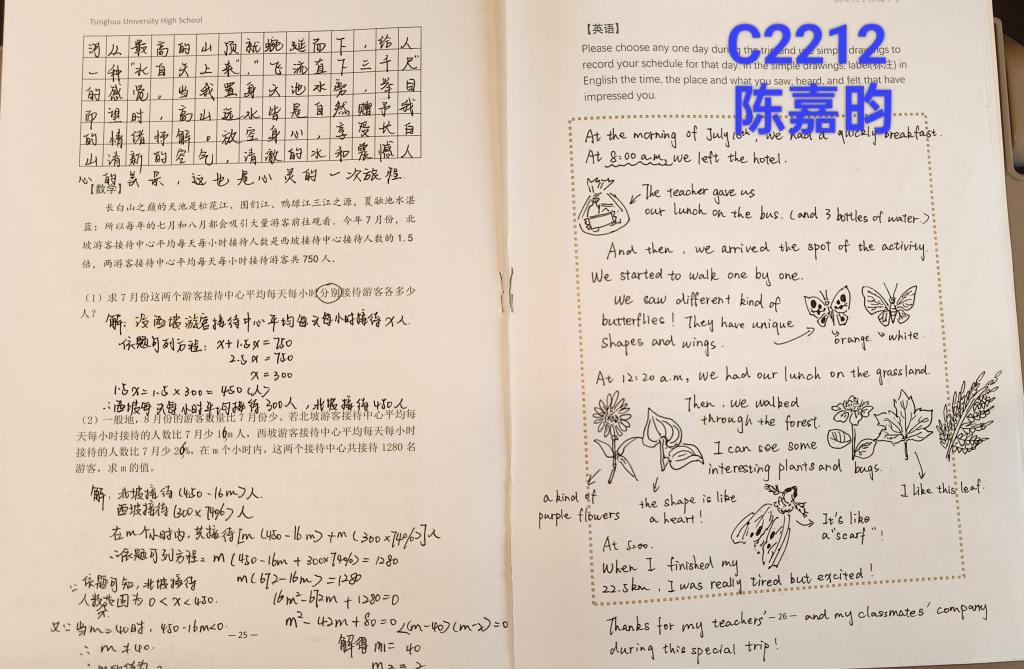 Tsinghua University High School
河从最高的山顶就蜿蜒而下，给人
一种"水自天上来"，"飞流直下三千尺"
的感觉，当我置身天池水旁，举目
而望时，高山远水皆是自然赠予我
的情绪抒解。放空身心，享受长白
山清新的空气，清澈的水和震憾人
心的美景，这也是心灵的一次旅程
【数学】
长白山之巅的天池是松花江、图们江、鸭绿江三江之源，夏融池水湛
蓝；所以每年的七月和八月都会吸引大量游客前往观看。今年7月份，北
坡游客接待中心平均每天每小时接待人数是西坡接待中心接待人数的1.5
倍，两游客接待中心平均每天每小时接待游客共750人.
（1）求7月份这两个游客接待中心平均每天每小时分别接待游客各多少
人？
解：设西坡游客接待中心平均每天每小时接待x人.
依题可列方程：x+1.5x=750
2.5x=750
x=300
1.5x=1.5×300=450(人)
∴西坡每天每小时平均接待300人，北坡接待450人
（2）一般地，8月份的游客数量比7月份少。若北坡游客接待中心平均每
天每小时接待的人数比7月少16m人，西坡游客接待中心平均每天每小时
接待的人数比7月少26%，在m个小时内，这两个接待中心共接待1280名
游客，求m的值。
解：北坡接待(450-16m)人.
西坡接待(300×74%)人
在m个小时内，共接待[m(450-16m)+m(300×74%)]人
∴依题可列方程=m(450-16m+300×74%)=1280
m(672-16m)=1280
16m²-672m+1280=0
m²-42m+80=0
(m-40)(m-2)=0
解得m=40
∵依题可知，北坡接待
人数范围为0<x<450.
又∵当m=40时，450-16m<0.
∴m≠40.
-25-
【英语】
Please choose any one day during the trip and use simple drawings to
record your schedule for that day. In the simple drawings, label(标注) in
English the time, the place and what you saw, heard, and felt that have
impressed you.
C2212
陈嘉昀
At the morning of July 16th, we had a quickly breakfast.
At 8:00 a.m, we left the hotel.
The teacher gave us
our lunch on the bus. (and 3 bottles of water.)
And then, we arrived the spot of the activity.
We started to walk one by one.
We saw different kind of
butterflies! They have unique
shapes and wings.
orange. white.
At 12:20 a.m, we had our lunch on the grassland.
Then, we walked
through the forest.
I can see some
interesting plants and bugs.
a kind of
purple flowers
the shape is like
a heart!
I like this leaf.
It's like
a "scarf"!
At 5:00.
When I finished my
22.5km, I was really tired but excited!
Thanks for my teachers' -26- and my classmates' company
during this special trip!